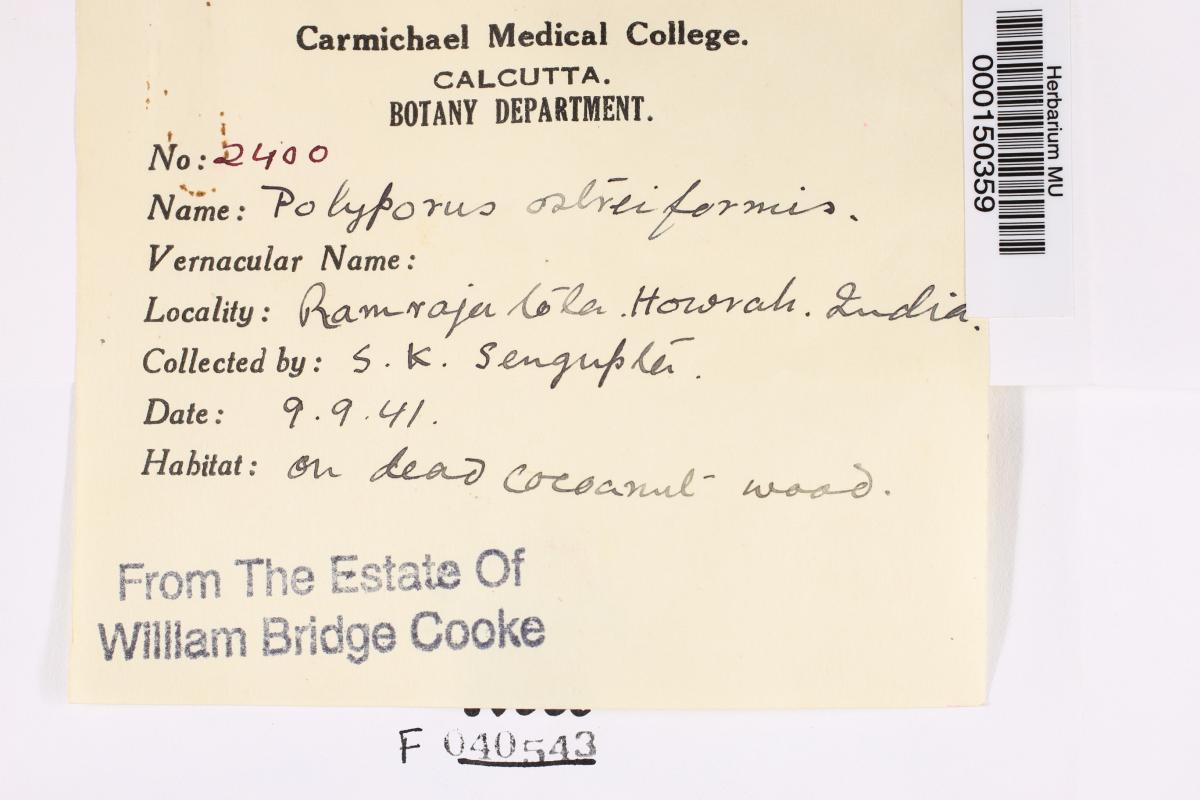 Carmichael Medical College.
CALCUTTA.
BOTANY DEPARTMENT.
No: 2400
Name: Polyporus ostreiformis.
Vernacular Name:
Locality: Ramrajatola. Howrah. India.
Collected by: S. K. Sengupta.
Date: 9.9.41.
Habitat: on dead cocoanut wood.
From The Estate Of
William Bridge Cooke
F 040543
Herbarium MU
000150359